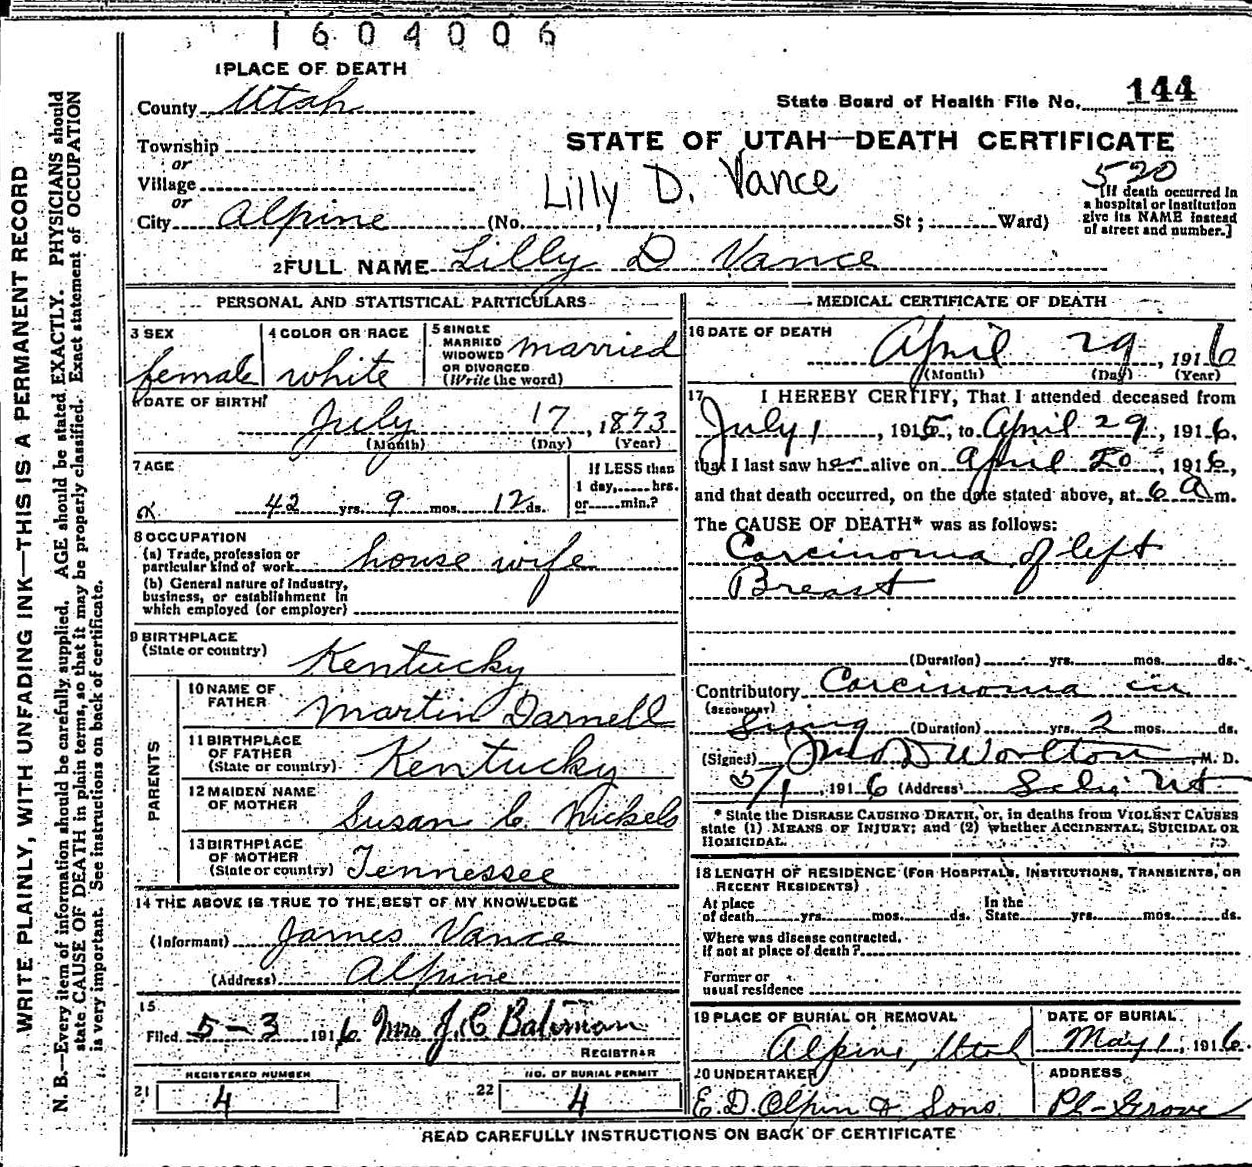 1604006
1 PLACE OF DEATH
County Utah
State Board of Health File No. 144
Township
or
Village
or
City Alpine (No. , St ; Ward)
STATE OF UTAH—DEATH CERTIFICATE
Lilly D. Vance
520
[If death occurred in
a hospital or institution
give its NAME instead
of street and number.]
2 FULL NAME Lilly D Vance
PERSONAL AND STATISTICAL PARTICULARS
3 SEX
female
4 COLOR OR RACE
white
5 SINGLE
MARRIED
WIDOWED
OR DIVORCED
(Write the word)
married
6 DATE OF BIRTH
July 17, 1873
(Month) (Day) (Year)
7 AGE
42 yrs. 9 mos. 12 ds.
If LESS than
1 day, hrs.
or min.?
8 OCCUPATION
(a) Trade, profession or
particular kind of work house wife
(b) General nature of industry,
business, or establishment in
which employed (or employer)
9 BIRTHPLACE
(State or country)
Kentucky
PARENTS
10 NAME OF
FATHER
Martin Darnell
11 BIRTHPLACE
OF FATHER
(State or country) Kentucky
12 MAIDEN NAME
OF MOTHER
Susan C. Nickels
13 BIRTHPLACE
OF MOTHER
(State or country) Tennessee
14 THE ABOVE IS TRUE TO THE BEST OF MY KNOWLEDGE
(Informant) James Vance
(Address) Alpine
15
Filed 5-3 1916 Mrs J.C. Bateman
REGISTRAR
21 REGISTERED NUMBER
4
22 NO. OF BURIAL PERMIT
4
MEDICAL CERTIFICATE OF DEATH
16 DATE OF DEATH
April 29, 1916
(Month) (Day) (Year)
17 I HEREBY CERTIFY, That I attended deceased from
July 1, 1915, to April 29, 1916,
that I last saw her alive on April 20, 1916,
and that death occurred, on the date stated above, at 6 A m.
The CAUSE OF DEATH* was as follows:
Carcinoma of left
Breast
(Duration) yrs. mos. ds.
Contributory Carcinoma in
(SECONDARY)
(Duration) yrs. 2 mos. ds.
(Signed) M. D.
5/1, 1916 (Address)
* State the DISEASE CAUSING DEATH, or, in deaths from VIOLENT CAUSES
state (1) MEANS OF INJURY; and (2) whether ACCIDENTAL, SUICIDAL OR
HOMICIDAL.
18 LENGTH OF RESIDENCE (FOR HOSPITALS, INSTITUTIONS, TRANSIENTS, OR
RECENT RESIDENTS)
At place
of death yrs. mos. ds.
In the
State yrs. mos. ds.
Where was disease contracted,
if not at place of death?
Former or
usual residence
19 PLACE OF BURIAL OR REMOVAL
Alpine, Utah
DATE OF BURIAL
May 1, 1916.
20 UNDERTAKER
E. D. Olpin & Sons
ADDRESS
Pl-Grove
READ CAREFULLY INSTRUCTIONS ON BACK OF CERTIFICATE
WRITE PLAINLY, WITH UNFADING INK—THIS IS A PERMANENT RECORD
N. B.—Every item of information should be carefully supplied. AGE should be stated EXACTLY. PHYSICIANS should
state CAUSE OF DEATH in plain terms, so that it may be properly classified. Exact statement of OCCUPATION
is very important. See instructions on back of certificate.